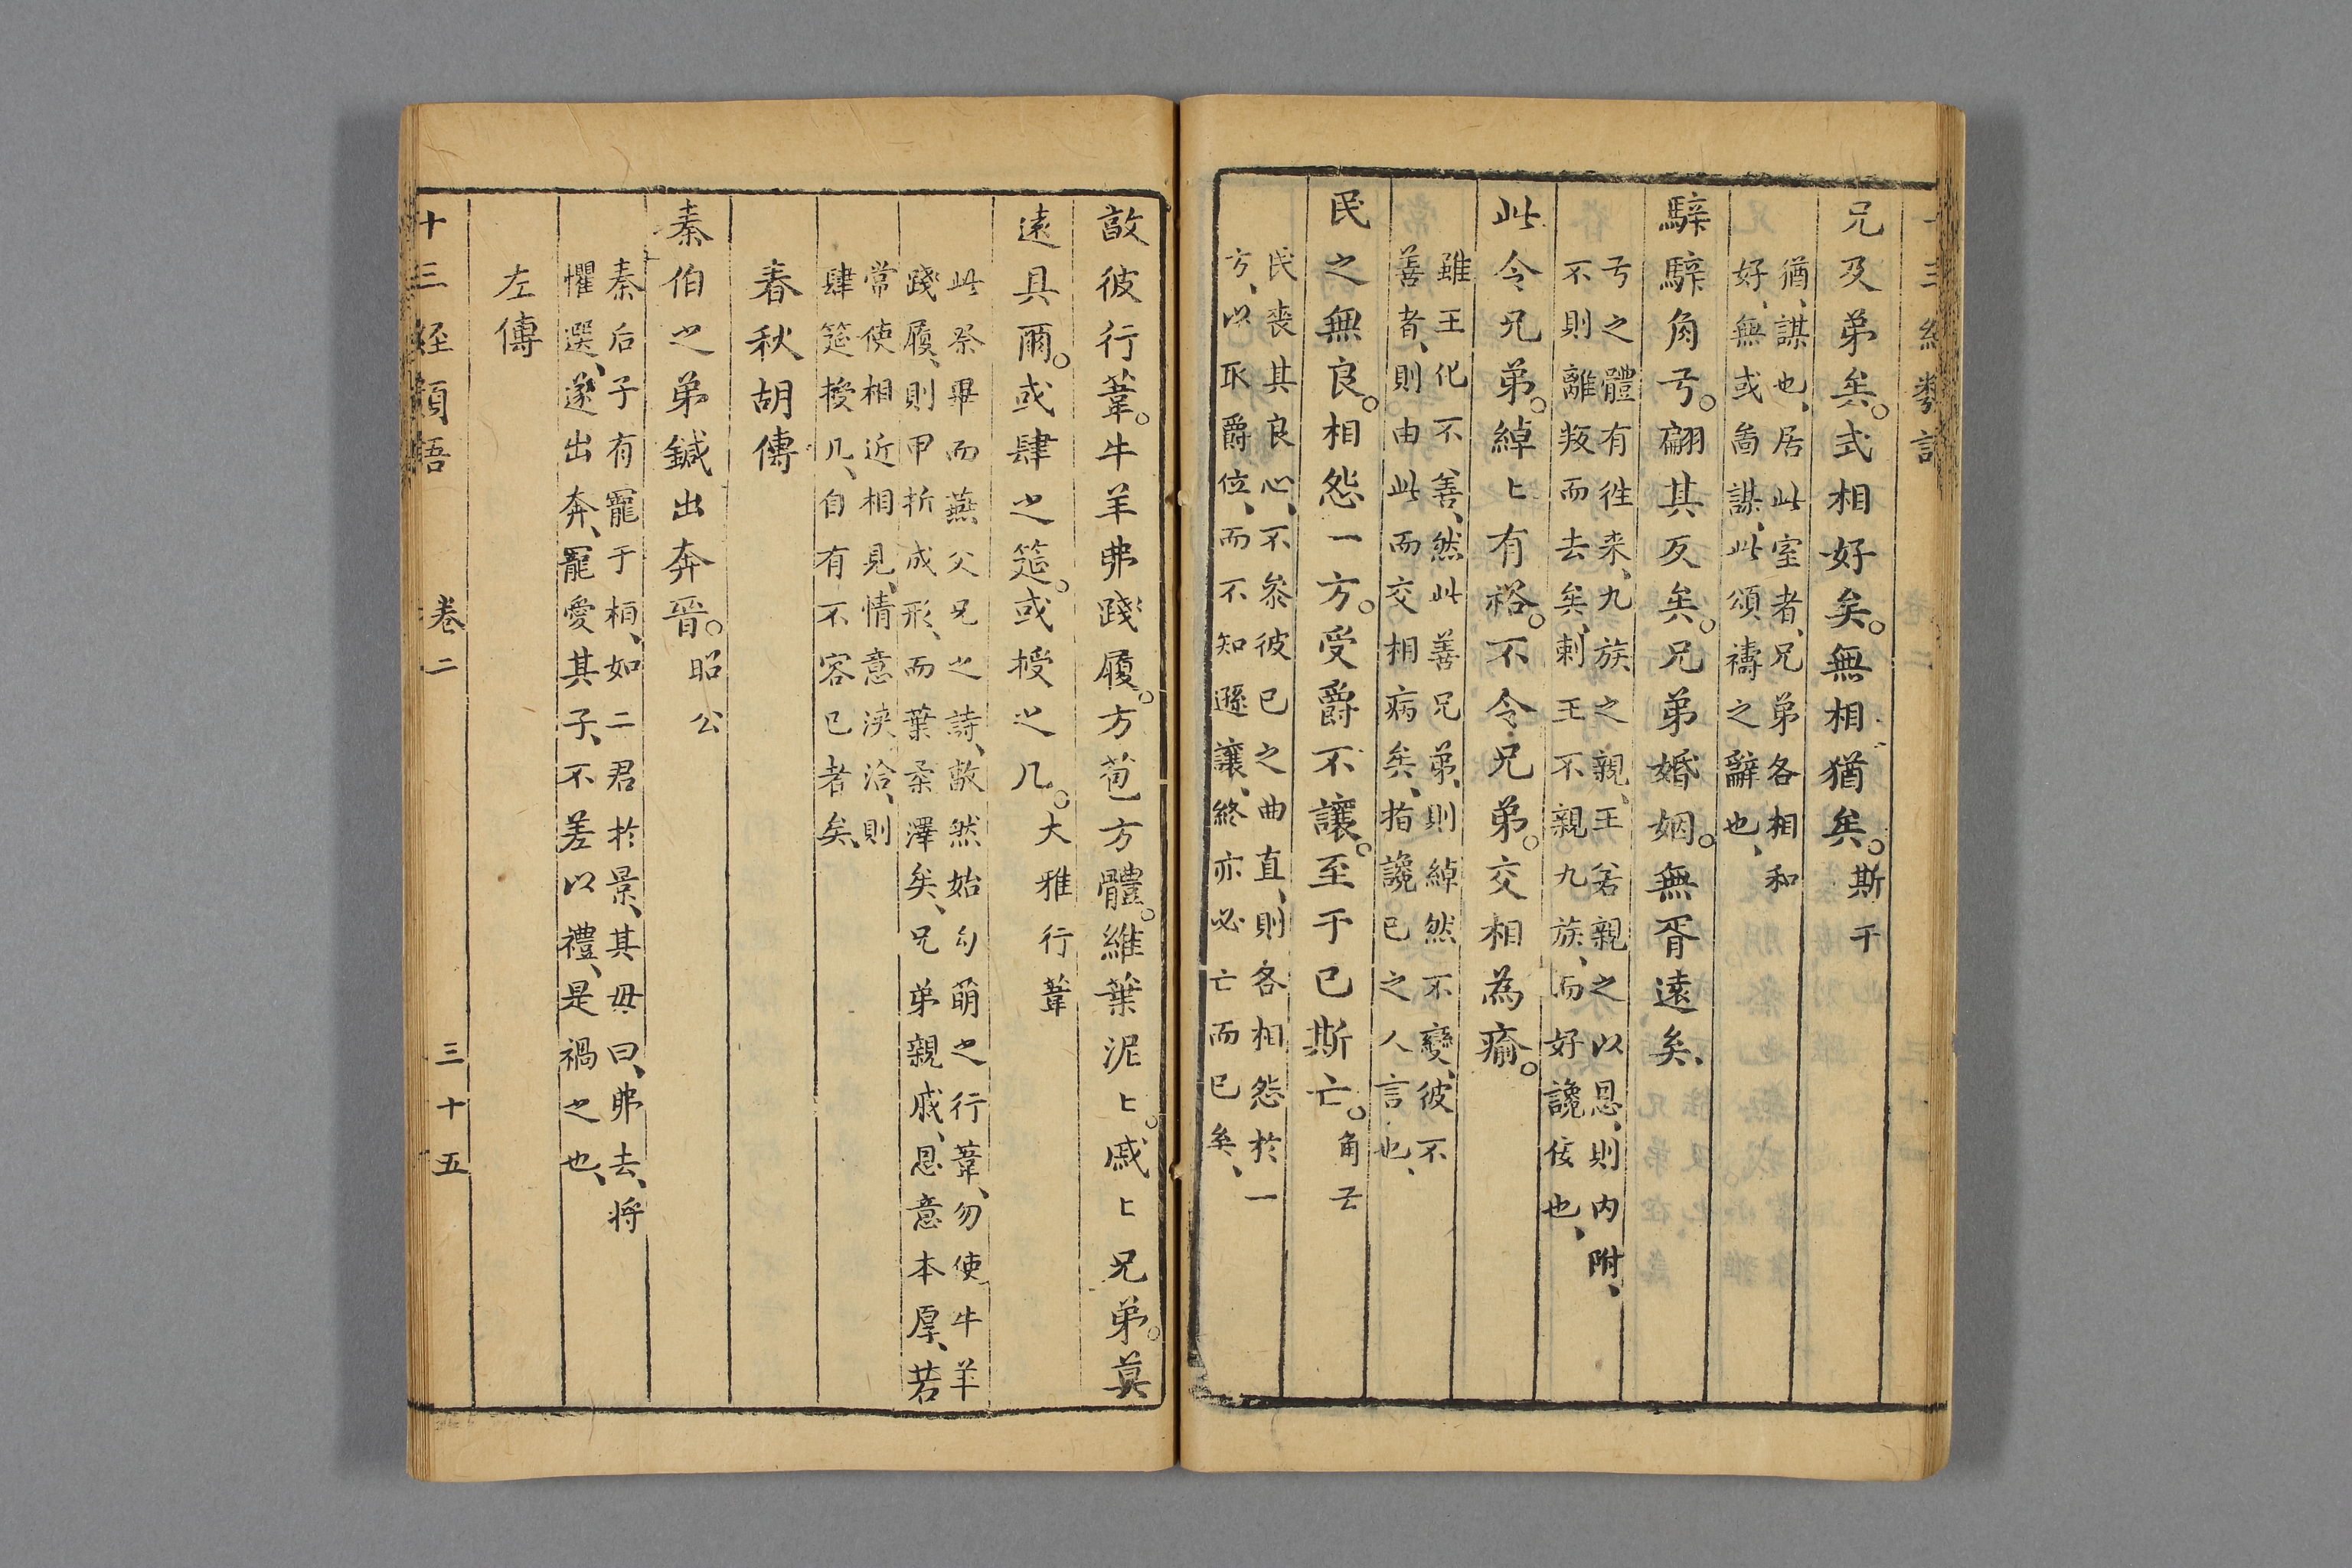 兄及弟矣。式相好矣。無相猶矣。斯干
猶、謀也、居此室者、兄弟各相和
好、無或啚謀、此頌禱之辭也、
騂騂角弓。翩其反矣。兄弟婚姻。無胥遠矣、
弓之體有徃来、九族之親、王若親之以恩、則内附、
不則離叛而去矣、刺王不親九族、而好讒侫也、
此令兄弟。綽〻有裕。不令兄弟。交相為瘉。
雖王化不善、然此善兄弟、則綽然不變、彼不
善者、則由此而交相病矣、指讒已之人言也、
民之無良。相怨一方。受爵不讓。至于已斯亡。角弓
民喪其良心、不叅彼已之曲直、則各相怨於一
方、以取爵位、而不知遜讓、終亦必亡而已矣、
敦彼行葦。牛羊弗踐履。方苞方體。維葉泥〻。戚〻兄弟。莫
遠具爾。或肆之筵。或授之几。大雅行葦
此祭畢而燕父兄之詩、敦然始勾萌之行葦、勿使牛羊
踐履、則甲折成形、而葉柔澤矣、兄弟親戚、恩意本厚、若
常使相近相見、情意浹洽、則
肆筵授几、自有不容已者矣、
春秋胡傳
秦伯之弟鍼出奔晉。昭公
秦后子有寵于桓、如二君於景、其母曰、弗去、将
懼選、遂出奔、寵愛其子、不差以禮、是禍之也、
左傳
十三經類語 卷二 三十五